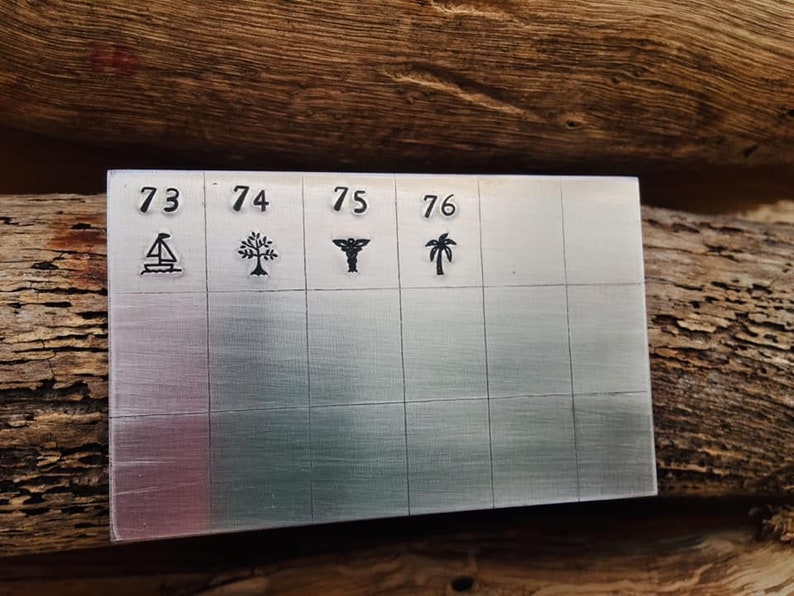 73 74 75 76